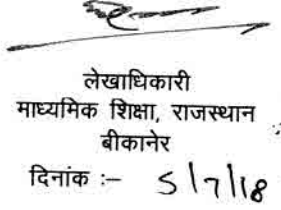 लेखाधिकारी
माध्यमिक शिक्षा, राजस्थान
बीकानेर
दिनांक :- 5/7/18